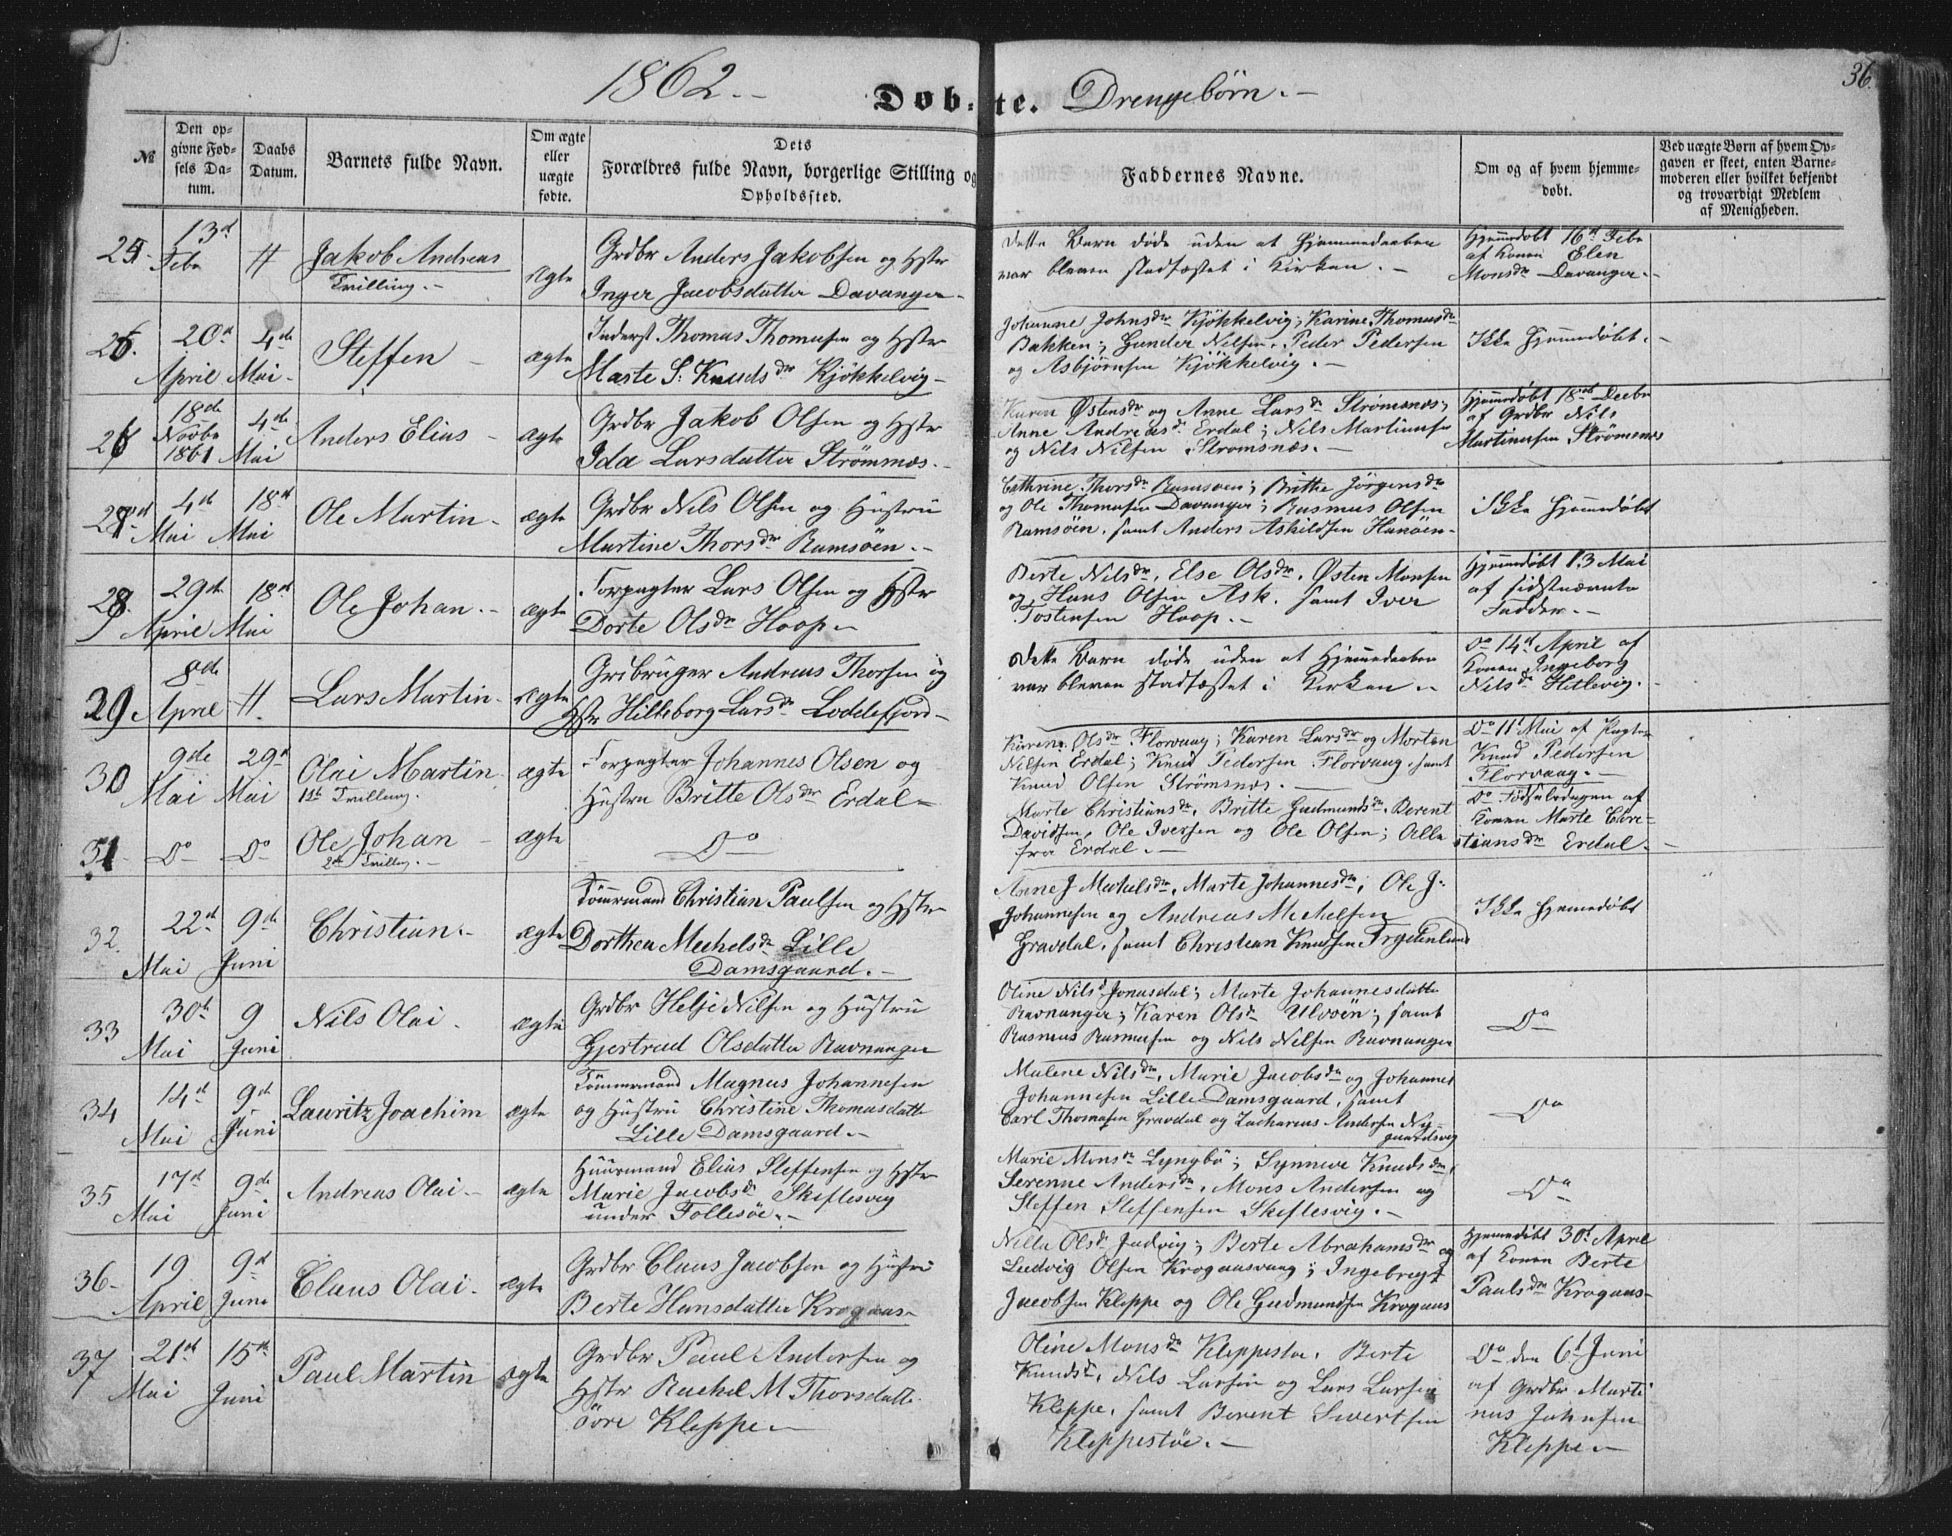 1862.-
Døb-te. Drengebørn.-
36
№
Den op-
givne Fød-
sels Da-
tum.
Daabs
Datum.
Barnets fulde Navn.
Om ægte
eller
uægte
fødte.
Dets
Forældres fulde Navn, borgerlige Stilling og
Opholdssted.
Faddernes Navne.
Om og af hvem hjemme-
døbt.
Ved uægte Børn af hvem Op-
gaven er skeet, enten Barne-
moderen eller hvilket bekjendt
og troværdigt Medlem
af Menigheden.
13de
Febr
Jakob Andreas
Tvilling.-
ægte
Grdbr Anders Jakobsen og Hstr
Inger Jacobsdatter Davanger-
Dette Barn døde uden at Hjemmedaaben
var bleven stadfæstet i Kirken.-
Hjemmdøbt 16de Febr
af Konen Elen
Monsdr Davanger.-
25.
20de
April
4de
Mai-
Steffen-
ægte
Inderst Thomas Thomasen og Hstr
Marte S: Knudsdr Kjøkkelvig-
Johanne Johnsdr Kjøkkelvig; Karine Thomasdr
Bakken; Gunder Nilsen, Peder Pedersen
og Asbjørnsen Kjøkkelvig.-
Ikke Hjemmdøbt.-
26
18de
Novbr
1861
4de
Mai
Anders Elias-
ægte
Grdbr Jakob Olsen og Hstr
Ida Larsdatter Strømnæs.-
Karen Østensdr og Anne Larsdr Strømsnæs;
Anne Andreasdr Erdal; Nils Martinusen
og Nils Nilsen Strømsnæs.-
Hjemmdøbt 18de Decbr
af Grdbr Nils
Martinusen Strømsnæs
4de
Mai
18de
Mai
Ole Martin-
ægte
Grdbr Nils Olsen og Hustru
Martine Thorsdr Ramsøen.-
Cathrine Thorsdr Ramsøen; Brithe Jørgensdr
og Ole Thomasen Davanger; Rasmus Olsen
Ramsøen, samt Anders Askildsen Hanøen-
Ikke Hjemmdøbt
28.
29de
April
18de
Mai
Ole Johan.-
ægte
Forpagter Lars Olsen og Hstr
Dorte Olsdr Hoop-
Berte Nilsdr, Else Olsdr, Østen Monsen
og Hans Olsen Ask, samt Iver
Tostensen Hoop.-
Hjemmdøbt 13 Mai
af sidstnævnte
Fadder.-
29.
8de
April
Lars Martin-
ægte
Grdbruger Andreas Thorsen og
Hstr Hilleborg Larsdr Loddefjord-
Dette Barn døde uden at Hjemmedaaben
var bleven stadfæstet i Kirken.-
Do 14de April af
Konen Ingeborg
Nilsdr Hetlevig.-
30
9de
Mai
29de
Mai
Olai Martin
1ste Tvilling.
ægte
Forpagter Johannes Olsen og
Hustru Britte Olsdr Erdal-
Karen Olsdr Florvaag; Karen Larsdr og Morten
Nilsen Erdal; Knud Pedersen Florvaag, samt
Knud Olsen Strømsnæs.-
Do 11t Mai af
Knud Pedersen
Florvaag.-
31-
Do
Do
Ole Johan-
2den Tvilling.-
ægte
Do
Marte Christiansdr, Britte Gudmundsdr, Berent
Davidsen, Ole Iversen og Ole Olsen; Alle
fra Erdal.-
Do Fødselsdagen af
Konen Marte Chri-
stiansdr Erdal-
32.
22de
Mai
9de
Juni
Christian.-
ægte
Tømrmand Christian Paulsen og Hstr
Dorthea Mechelsdr Lille
Damsgaard.-
Anne J Mechelsdr, Marte Johannesdr, Ole J.
Johannesen og Andreas Mechelsen
Gravdal, samt Christian Knudsen
Ikke Hjemmdøbt
33
30de
Mai
9
Juni
Nils Olai.
ægte
Grdbr Helje Nilsen og Hustru
Gjertrud Olsdatter Ravnanger
Oline Nilsd Jonasdal; Marte Johannesdatter
Ravnanger; Karen Olsdr Ulvøen; samt
Rasmus Rasmusen og Nils Nilsen Ravnanger
Do
34
14de
Mai
9de
Juni
Lauritz Joachim
ægte
Tømmermand Magnus Johannesen
og Hustru Christine Thomasdatter
Lille Damsgaard.-
Malene Nilsdr, Marie Jacobsdr og Johannes
Johannesen Lille Damsgaard, samt
Carl Thomasen Gravdal og Zacharias Andersen Ny-
gaardsvig
Do
35
17de
Mai
9de
Juni
Andreas Olai-
ægte
Huusmand Elias Steffensen og Hstr
Marie Jacobsdr Skiftesvig
under Follesøe.-
Marie Monsdr Lyngbø; Synneve Knudsdr,
Serenne Andersdr, Mons Andersen og
Steffen Steffensen Skiftesvig.-
Do
36-
19
April
9de
Juni
Claus Olai.
ægte
Grdbr Claus Jacobsen og Hustru
Berte Hansdatter Krogaas-
Nille Olsdr Judvig; Berte Abrahamsdr og
Ludvig Olsen Krogaasvaag; Ingebregt
Jacobsen Kleppe og Ole Gudmundsen Krogaas
Hjemmdøbt 30t April
af Konen Berte
Paulsdr Krogaas-
37
21de
Mai
15de
Juni
Paul Martin
ægte
Grdbr Paul Andersen og
Hstr Rachel M Thorsdatter
øvre Kleppe-
Oline Monsdr Kleppestøe, Berte
Knudsdr, Nils Larsen og Lars Larsen
Kleppe, samt Berent Sivertsen
Kleppestøe.-
Do den 6t Juni
af Grdbr Marti
nus Johnsen
Kleppe-